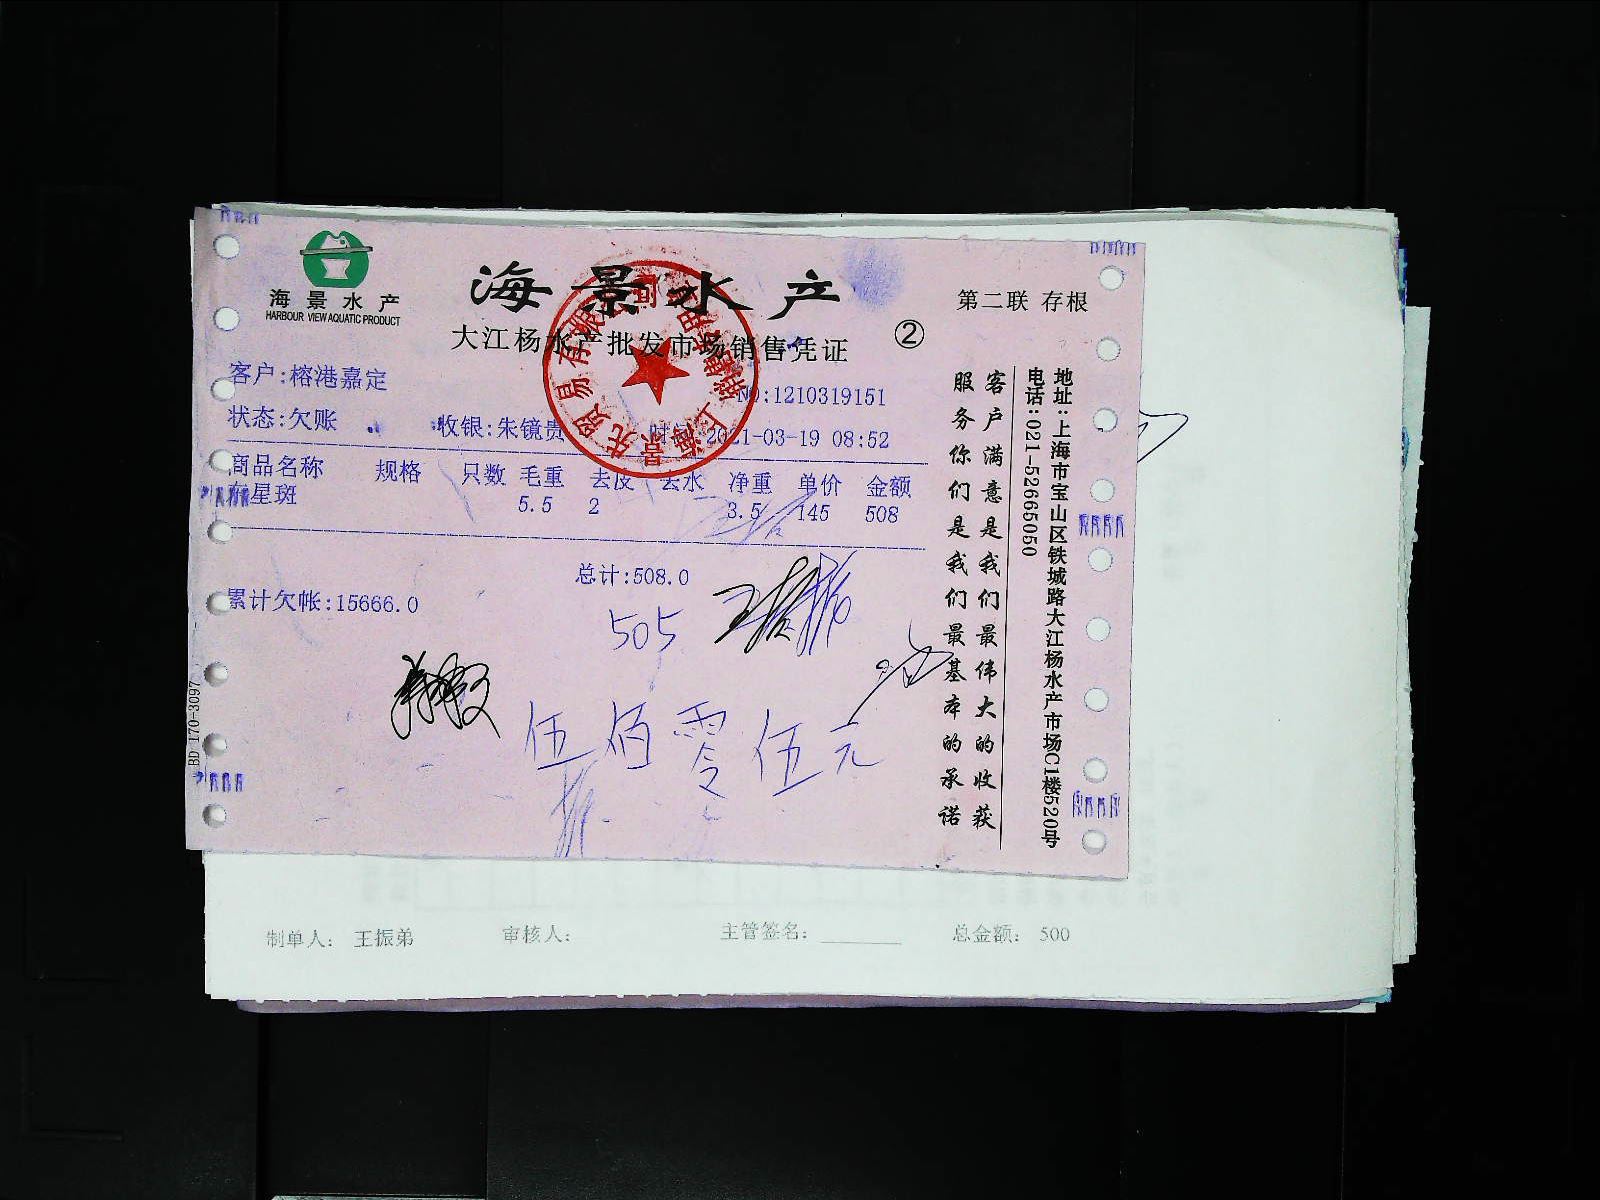 海景水产
HARBOUR VIEW AQUATIC PRODUCT
海景水产
大江杨水产批发市场销售凭证
②
第二联 存根
客户:榕港嘉定
NO:1210319151
状态:欠账 收银:朱镜贵 时间 2021-03-19 08:52
商品名称 规格 只数 毛重 去皮 去水 净重 单价 金额
东星斑 5.5 2 3.5 145 508
总计:508.0
累计欠帐:15666.0
505
伍佰零伍元
客户满意是我们最伟大的收获
服务你们是我们最基本的承诺
地址:上海市宝山区铁城路大江杨水产市场C1楼520号
电话:021-52665050
BD 170-3097
制单人: 王振弟 审核人: 主管签名: 总金额: 500